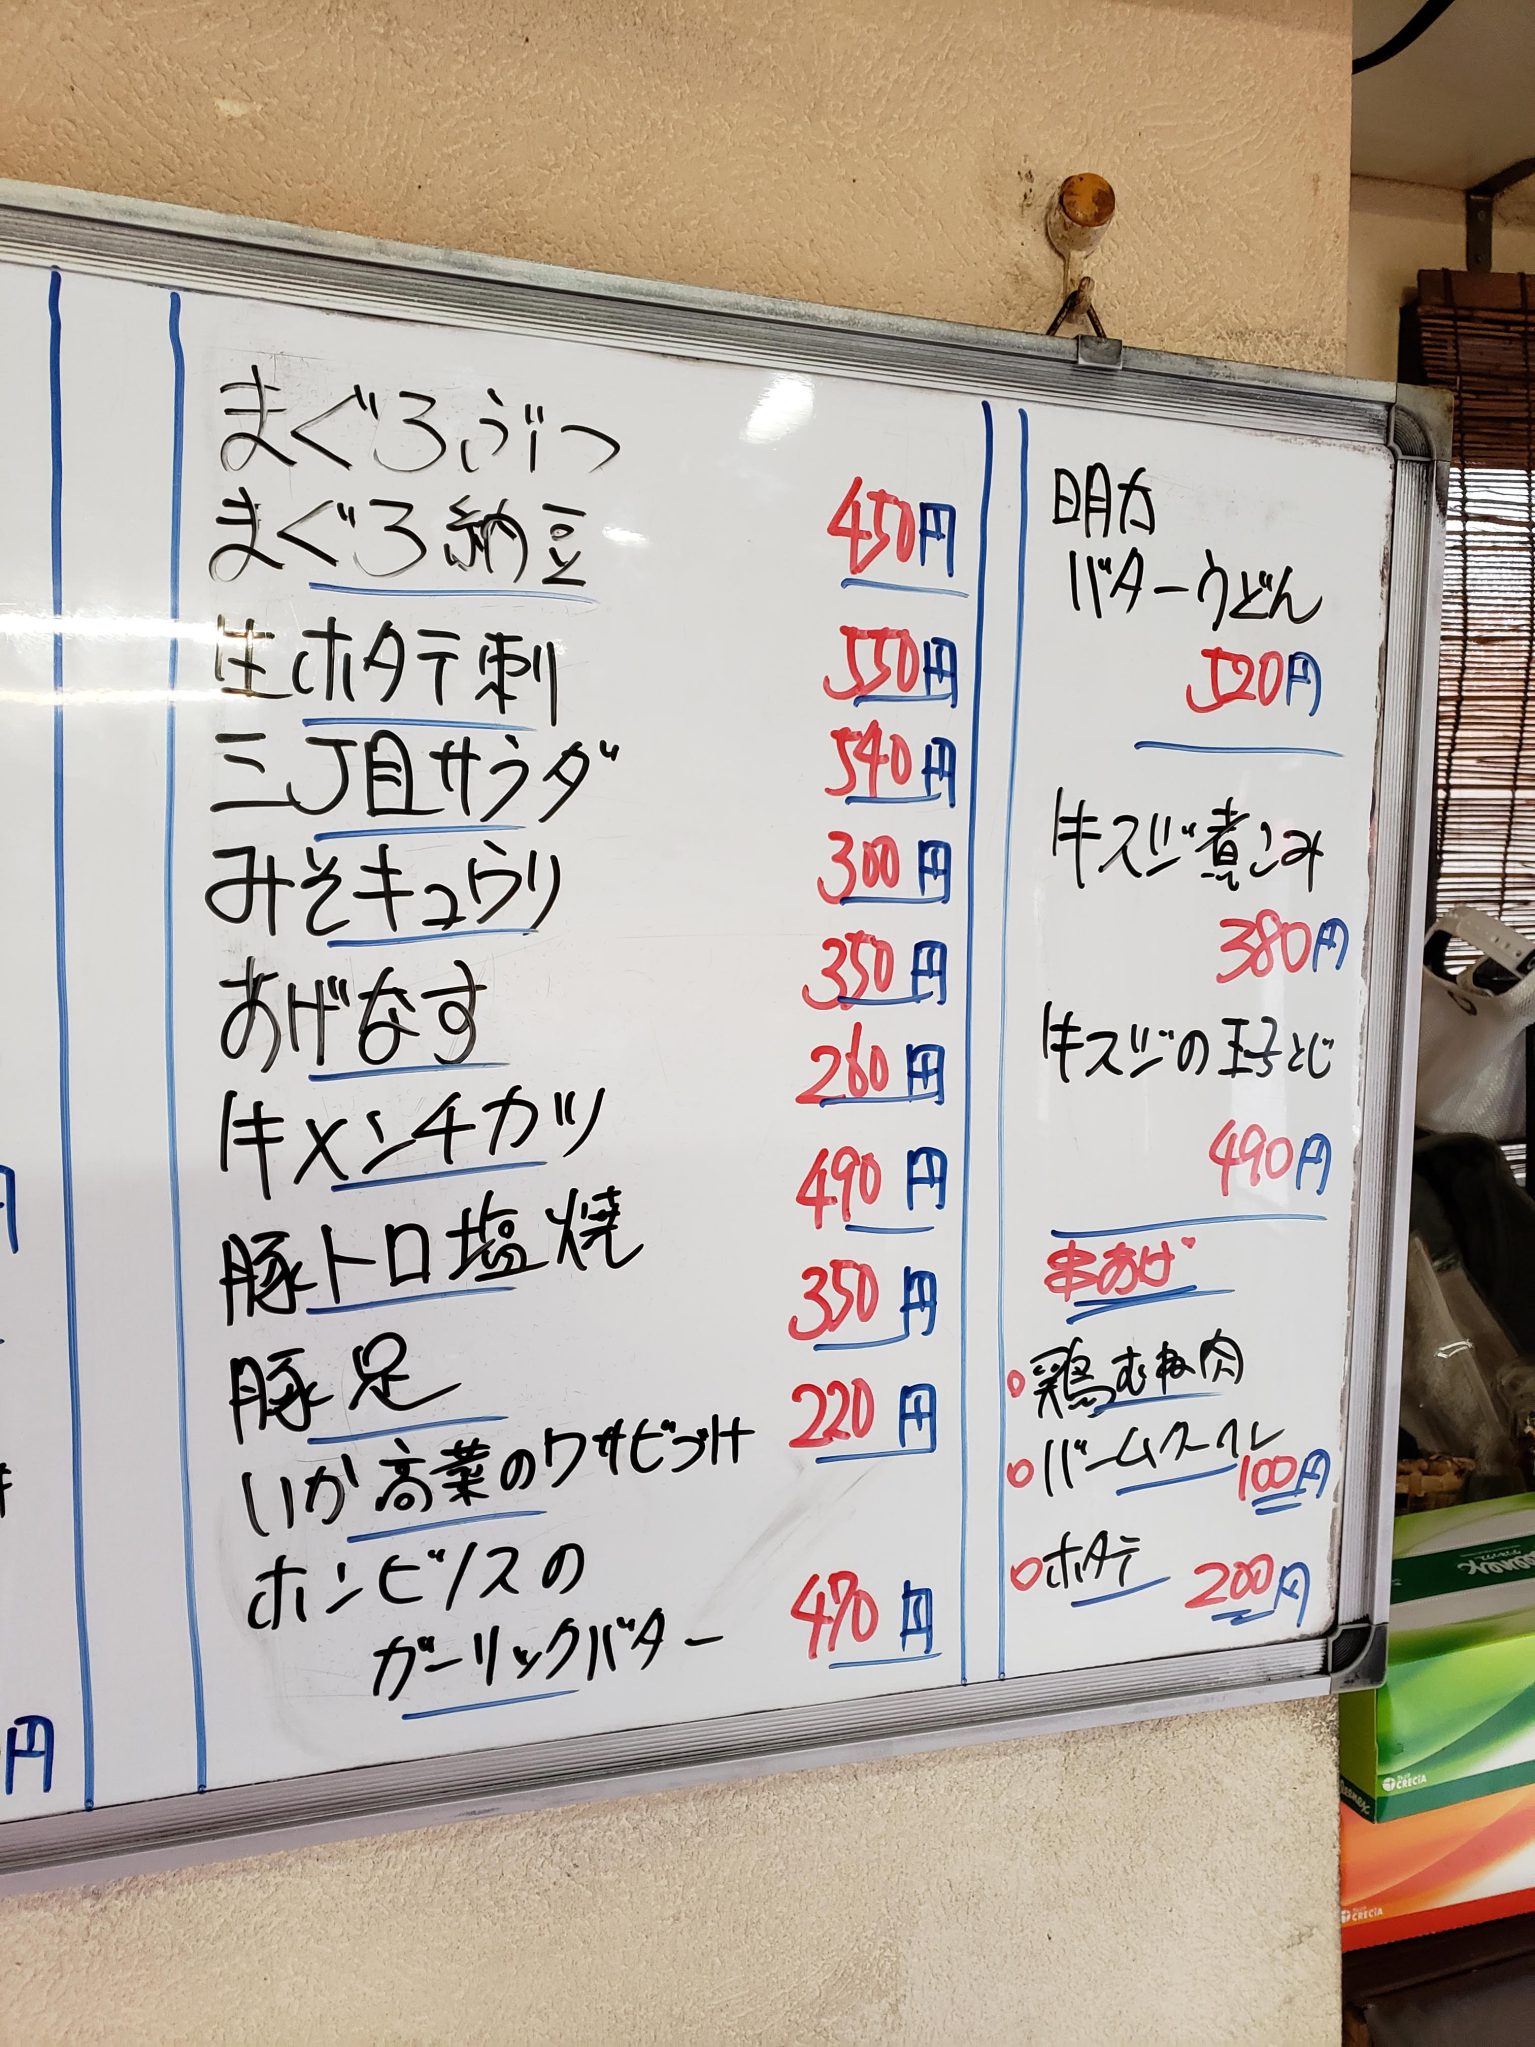 まぐろぶつ
まぐろ納豆 450円
生ホタテ刺 550円
三丁目サラダ 540円
みそキュウリ 300円
あげなす 350円
牛メンチカツ 260円
豚トロ塩焼 490円
豚足 350円
いか高菜のワサビづけ 220円
ホンビノスの
ガーリックバター 470円
明太
バターうどん
520円
牛スジ煮こみ
380円
牛スジの玉子とじ
490円
串あげ
鶏むね肉
バームクーヘン 100円
ホタテ 200円
円
CRECIA
CRECIA